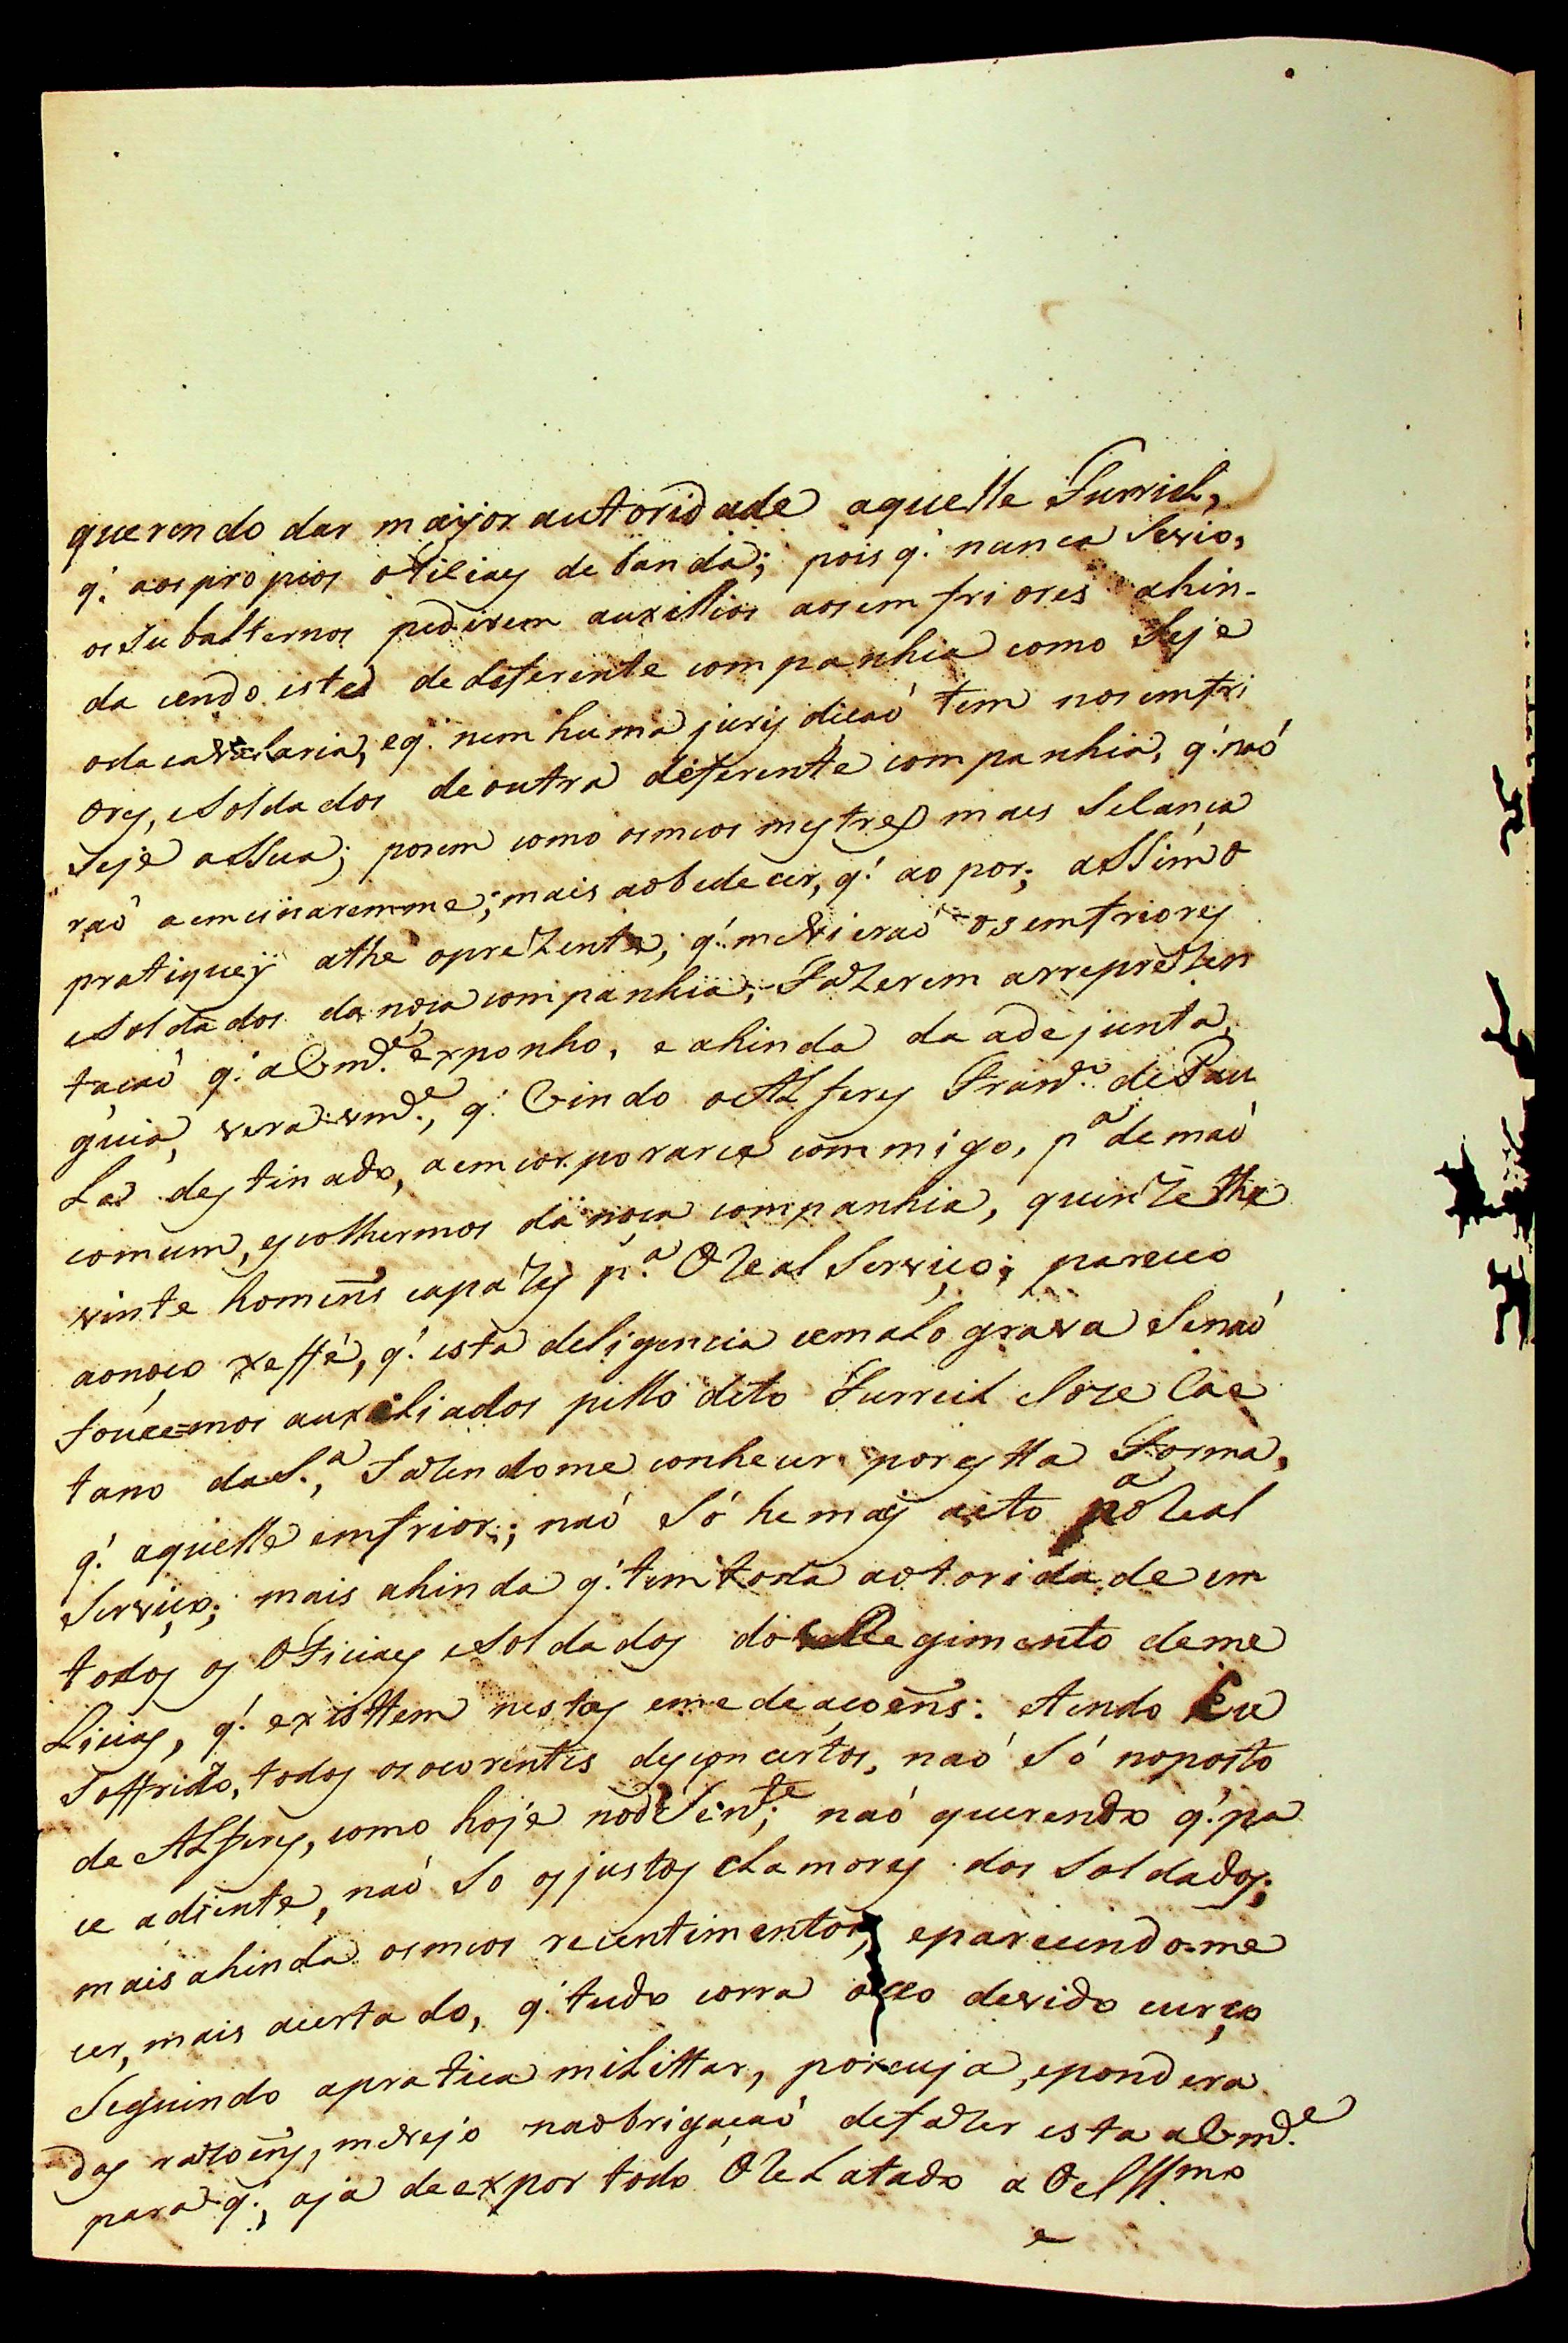 querendo dar maijor autoridade aquelle Furriel,
q.' aos propios ofiliaes de banda; pois q.' nunca Sevio,
os Subalternos pedirem auxillios aos emfriores ahin-
da cendo estes de deferente companhia como Seje
o da cavalaria, e q.' nem huma jurisdicaó tem nos emfri
ores, e Soldados de outra deferente companhia, q.' naó
Seje a Sua; porem como os meos mestres mais Selança
raó a emcinaremme; mais a obedecer, q.' ao por; assim o
pratiquey athe o prezente, q.' me vieraó os emfriores
e Soldados da noca companhia, Fazerem a rreprezen
tacaó q.' a Vm.ᶜᵉ exponho, e ahinda da adejunta
guia, vera vm.ᶜᵉ, q.' Vindo o Alferes Fran.ᶜᵒ de Pau
La destinado, a emcorporarce commigo, p.ᵃ de maó
comum, escolhermos da noca companhia, quinze the
vinte homens capazes p.ᵃ O Real Serviço; pareceo
ao noco xeffe, q.' esta deligencia cemalograva Senaó
Foucemos auxiliados pello dito Furriel Joze Cae
tano da S.ᵃ, Fazendome conhecer por estta Forma,
q.' aquelle emfrior; naó Só he mais acto p.ᵃ o Real
Serviço; mais ahinda q.' tem toda autoridade em
todos os Oficiaes e Soldados do Regimento de me
Licias, q.' existtem nestas emedeacoens: e tendo Eu
Soffrido, todos os ocorentes desconcertos, naó Só no posto
de Alferes, como hoje no de Ten.ᵗᵉ; naó querendo q.' pa
ce adiente, naó So os justos clamores dos Soldados;
mais ahinda os meos recentimentos, e parecendo-me
cer, mais acertado, q.' tudo corra o ceo devido curço
Seguindo a pratica milittar, por cuja, e pondera
das razoens, me vejo na obrigacaó de fazer esta a Vm.ᶜᵉ
para q.', aja de expor todo O Relatado a O Ill.ᵐᵒ
e